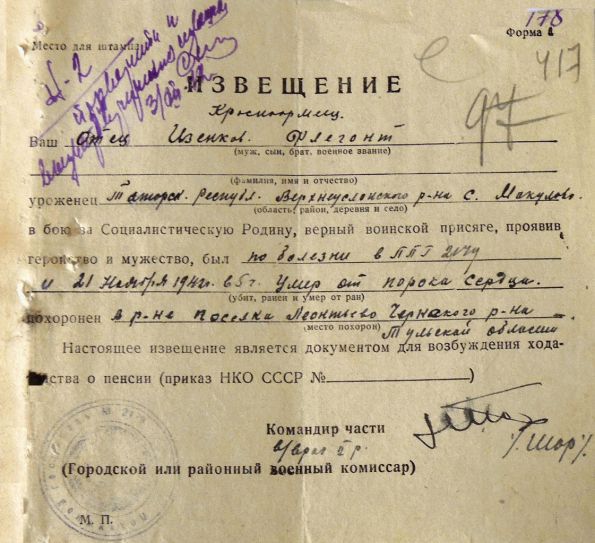 178
Место для штампа
Форма
417
97
ИЗВЕЩЕНИЕ
Красноармеец
Ваш Отец Изенков Флегонт
(муж, сын, брат, военное звание)
(фамилия, имя и отчество)
уроженец Татарск. Республ. Верхнеуслонского р-на с. Макулово.
(область, район, деревня и село)
в бою за Социалистическую Родину, верный воинской присяге, проявив
геройство и мужество, был по болезни в ППГ
и 21 Ноября 1942 в 5 г. Умер от порока сердца.
(убит, ранен и умер от ран)
похоронен в р-не поселка Леонтьево Чернского р-на
(место похорон) Тульской области
Настоящее извещение является документом для возбуждения хода-
тайства о пенсии (приказ НКО СССР № )
Командир части
в/врач 2 р.
/Шор/
(Городской или районный военный комиссар)
М. П.